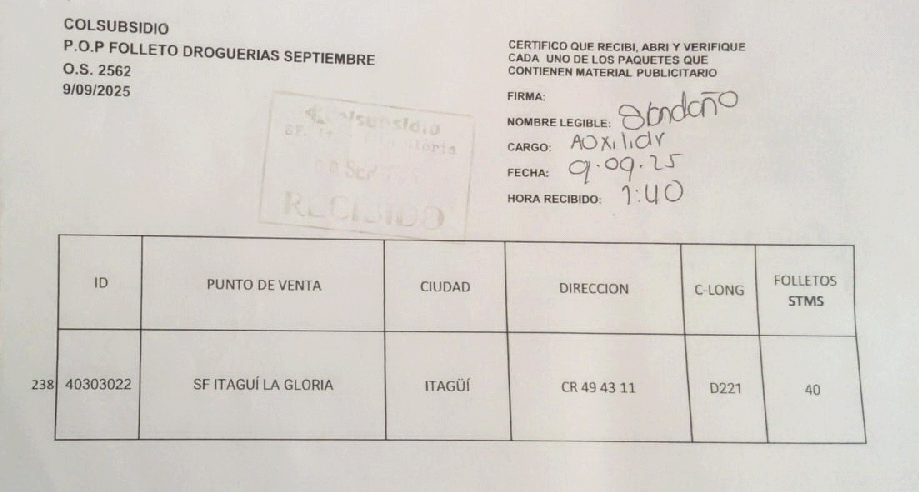 COLSUBSIDIO
P.O.P FOLLETO DROGUERIAS SEPTIEMBRE
O.S. 2562
9/09/2025
CERTIFICO QUE RECIBI, ABRI Y VERIFIQUE
CADA UNO DE LOS PAQUETES QUE
CONTIENEN MATERIAL PUBLICITARIO
FIRMA:
NOMBRE LEGIBLE:
CARGO: Aoxiliar
FECHA: 9.09.25
HORA RECIBIDO: 1:40
Colsubsidio
Gloria
RECIBIDO
ID PUNTO DE VENTA CIUDAD DIRECCION C-LONG FOLLETOS STMS
238 40303022 SF ITAGUÍ LA GLORIA ITAGÜÍ CR 49 43 11 D221 40